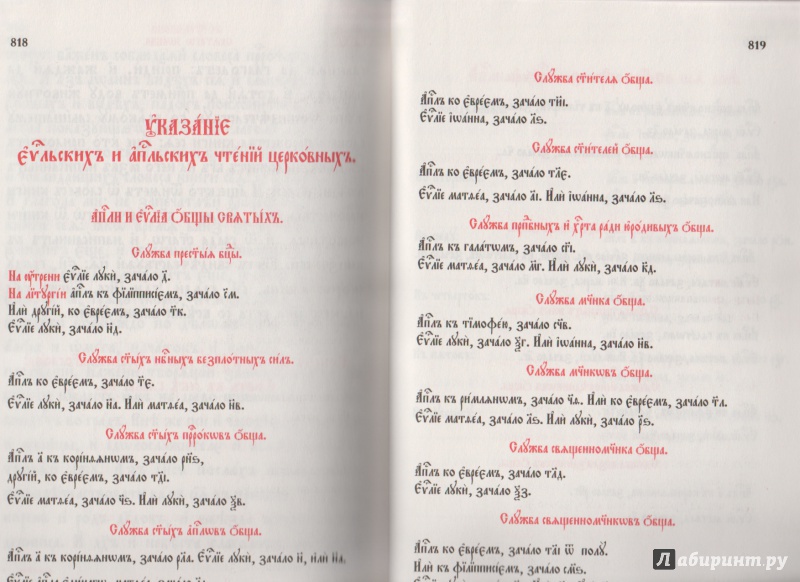 818
Оу҆каза́нїе
є҆ѵⷢ҇льскихъ и а҆пⷭ҇льскихъ чте́нїй церко́вныхъ.
А҆пⷭ҇ли и є҆ѵⷢ҇лїа ѻ҆́бщыѧ свѧты́хъ.
Слꙋ́жба прест҃ы́ѧ бц҃ы.
На ᲂу҆́трени є҆ѵⷢ҇лїе лꙋкѝ, зача́ло д҃.
На лїтꙋргі́и а҆пⷭ҇лъ къ фїлїпписі́ємъ, зача́ло с҃м.
И҆лѝ дрꙋгі́й, ко є҆вре́ємъ, зача́ло т҃к.
Є҆ѵⷢ҇лїе лꙋкѝ, зача́ло н҃д.
Слꙋ́жба ст҃ы́хъ нбⷭ҇ныхъ безпло́тныхъ си́лъ.
А҆пⷭ҇лъ ко є҆вре́ємъ, зача́ло т҃є.
Є҆ѵⷢ҇лїе лꙋкѝ, зача́ло н҃а. И҆лѝ матѳе́а, зача́ло н҃в.
Слꙋ́жба ст҃ы́хъ прⷪ҇ро́кѡвъ ѻ҆́бща.
А҆пⷭ҇лъ а҃ къ корі́нѳѧнѡмъ, зача́ло рн҃ѕ,
дрꙋгі́й, ко є҆вре́ємъ, зача́ло тд҃і.
Є҆ѵⷢ҇лїе матѳе́а, зача́ло ч҃ѕ. И҆лѝ лꙋкѝ, зача́ло ѯ҃в.
Слꙋ́жба ст҃ы́хъ а҆пⷭ҇лѡвъ ѻ҆́бща.
А҆пⷭ҇лъ а҃ къ корі́нѳѧнѡмъ, зача́ло рл҃а. Є҆ѵⷢ҇лїе лꙋкѝ, зача́ло н҃, и҆лѝ н҃а.
819
Слꙋ́жба ст҃и́телѧ ѻ҆́бща.
А҆пⷭ҇лъ ко є҆вре́ємъ, зача́ло ти҃і.
Є҆ѵⷢ҇лїе і҆ѡа́нна, зача́ло л҃ѕ.
Слꙋ́жба ст҃и́телей ѻ҆́бща.
А҆пⷭ҇лъ ко є҆вре́ємъ, зача́ло тл҃є.
Є҆ѵⷢ҇лїе матѳе́а, зача́ло а҃і. И҆лѝ і҆ѡа́нна, зача́ло л҃ѕ.
Слꙋ́жба прпⷣбныхъ и҆ хрⷭ҇та̀ ра́ди ю҆ро́дивыхъ ѻ҆́бща.
А҆пⷭ҇лъ къ гала́тѡмъ, зача́ло сг҃і.
Є҆ѵⷢ҇лїе матѳе́а, зача́ло м҃г. И҆лѝ лꙋкѝ, зача́ло к҃д.
Слꙋ́жба мч҃ника ѻ҆́бща.
А҆пⷭ҇лъ къ тїмоѳе́ю, зача́ло сч҃в.
Є҆ѵⷢ҇лїе лꙋкѝ, зача́ло ѯ҃г. И҆лѝ і҆ѡа́нна, зача́ло н҃в.
Слꙋ́жба мч҃никѡвъ ѻ҆́бща.
А҆пⷭ҇лъ къ ри́млѧнѡмъ, зача́ло ч҃ѳ. И҆лѝ ко є҆вре́ємъ, зача́ло т҃л.
Є҆ѵⷢ҇лїе матѳе́а, зача́ло л҃ѕ. И҆лѝ лꙋкѝ, зача́ло р҃ѕ.
Слꙋ́жба сщ҆енномч҃ника ѻ҆́бща.
А҆пⷭ҇лъ ко є҆вре́ємъ, зача́ло тл҃д.
Є҆ѵⷢ҇лїе лꙋкѝ, зача́ло ѯ҃з.
Слꙋ́жба свѧщенномч҃никѡвъ ѻ҆́бща.
А҆пⷭ҇лъ ко є҆вре́ємъ, зача́ло та҃і ѿ полꙋ̀.
И҆лѝ къ фїлїпписі́ємъ, зача́ло см҃ѕ.
Лабиринт.ру